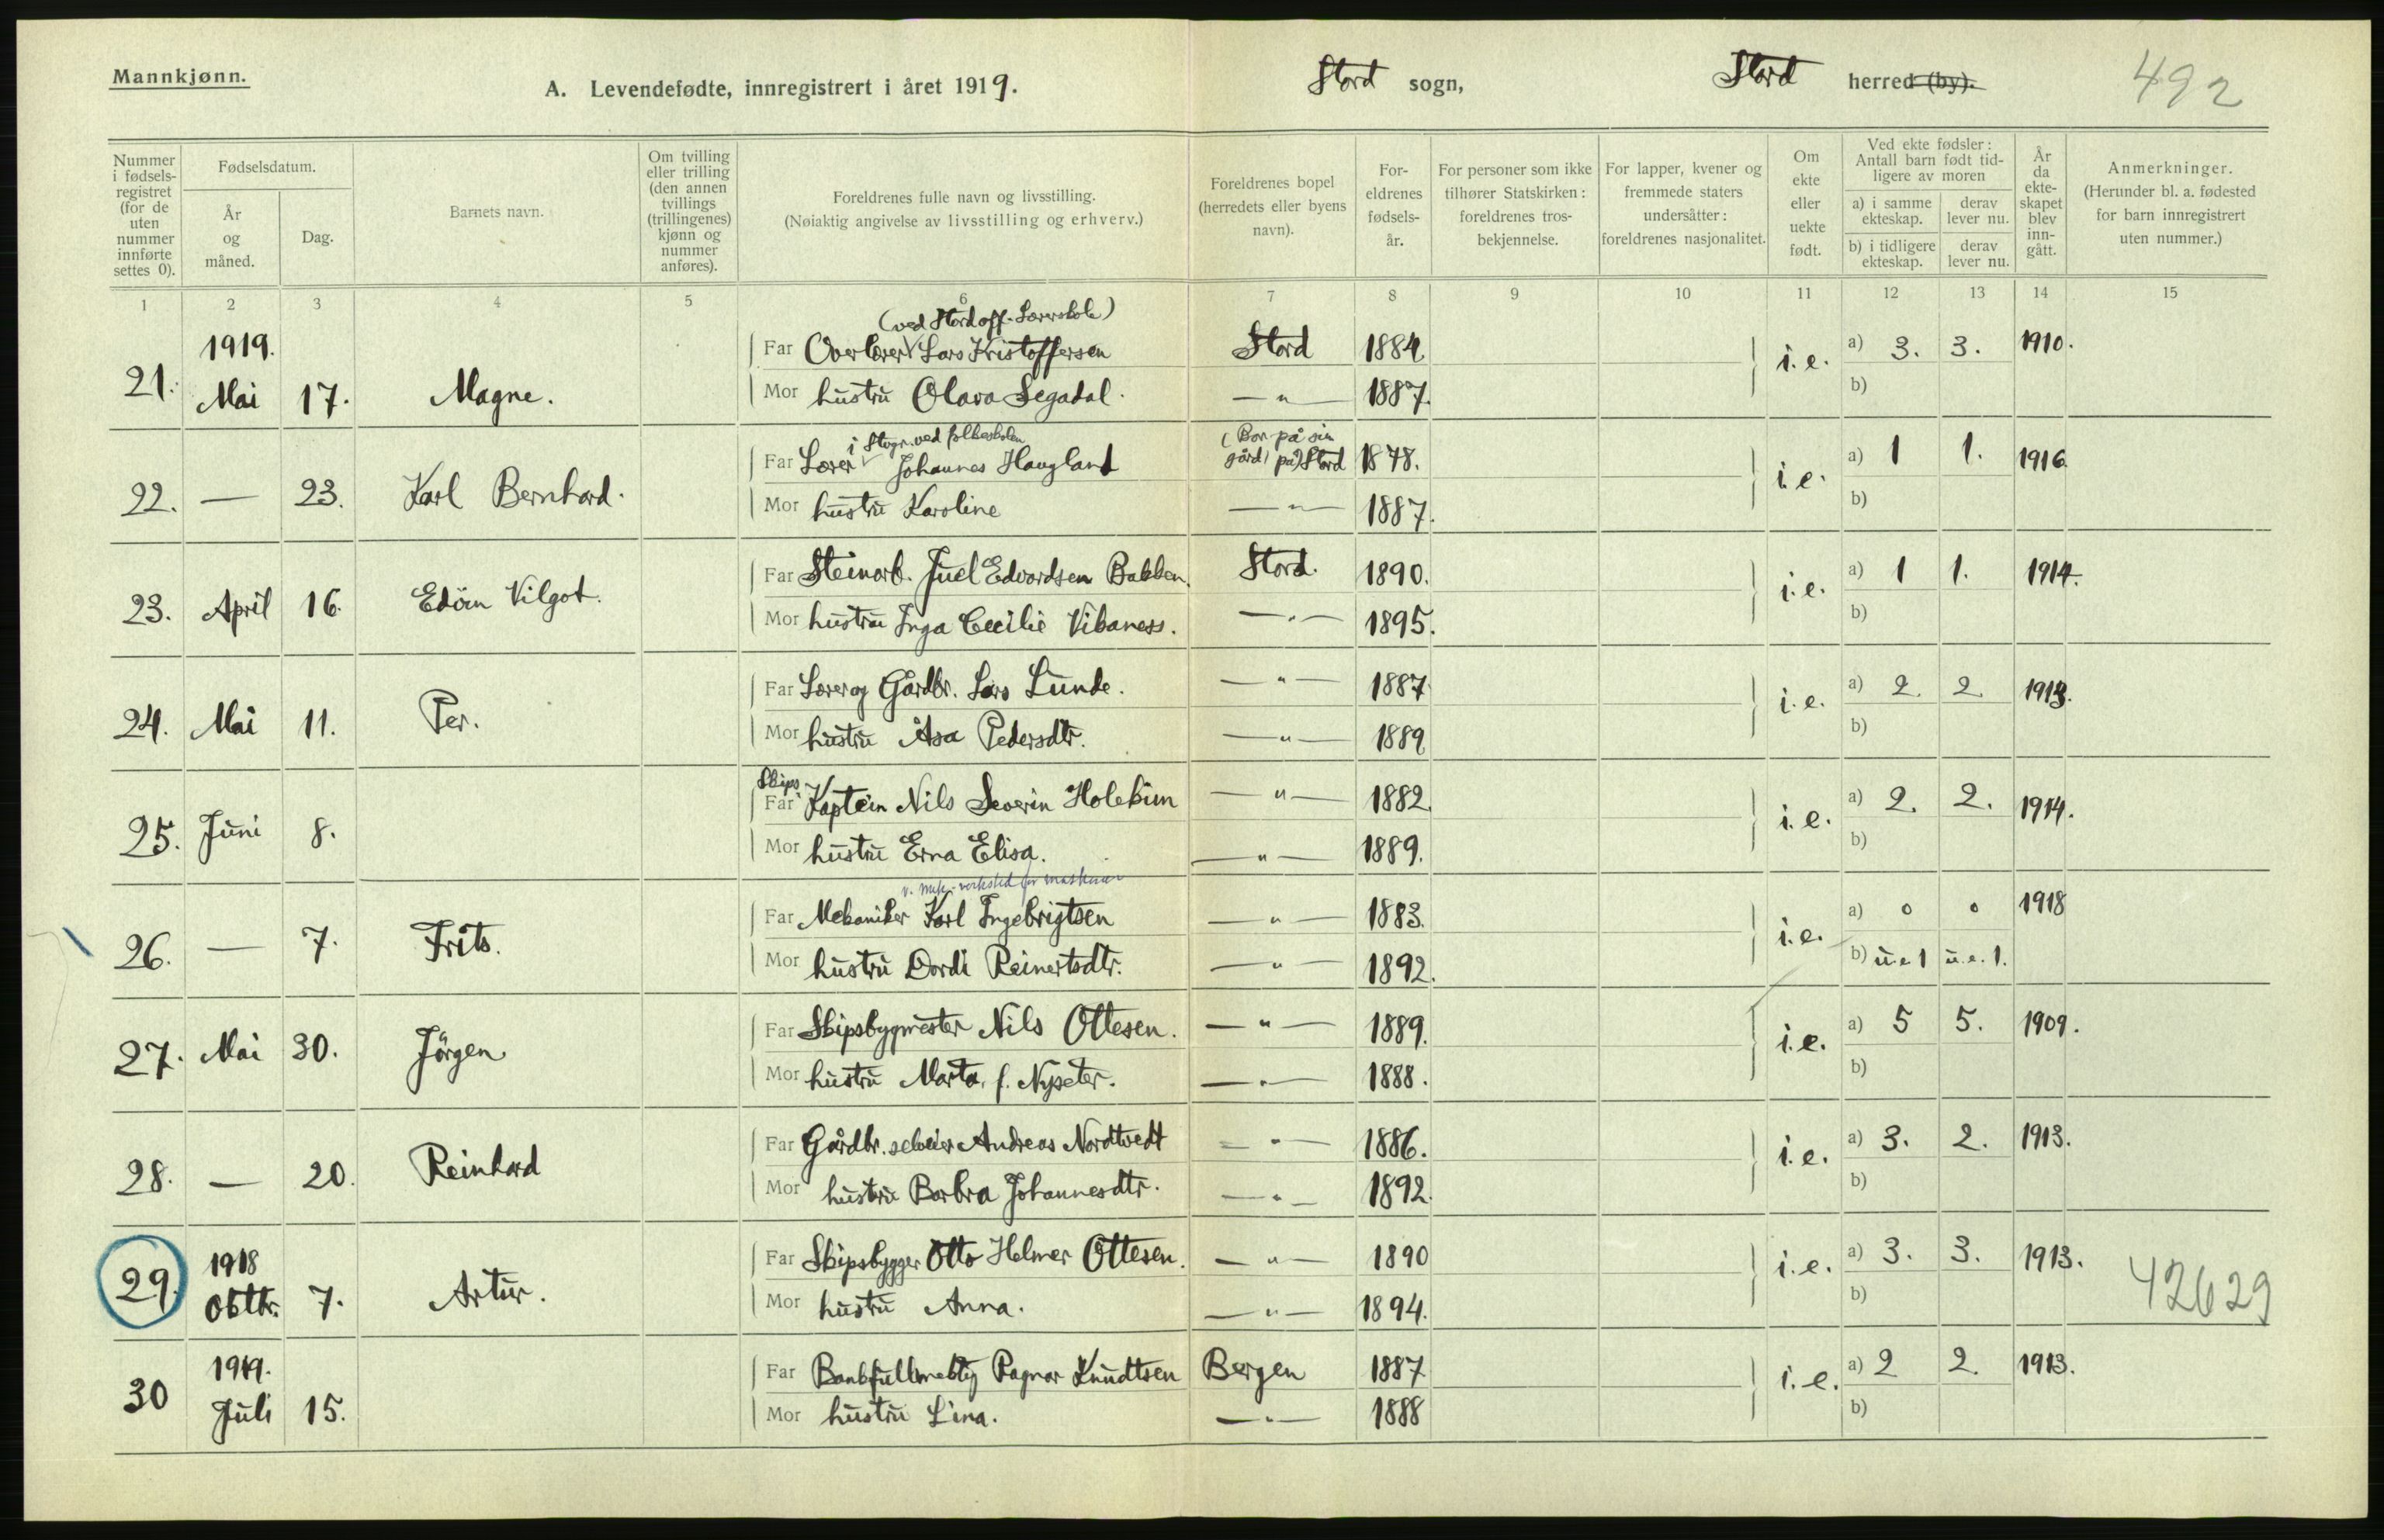 Mannkjønn.
A. Levendefødte, innregistrert i året 1919.
Stord sogn,
Stord herred (by).
492
Nummer i fødselsregistret (for de uten nummer innførte settes 0).
Fødselsdatum.
År og måned.
Dag.
Barnets navn.
Om tvilling eller trilling (den annen tvillings (trillingenes) kjønn og nummer anføres).
Foreldrenes fulle navn og livsstilling.
(Nøiaktig angivelse av livsstilling og erhverv.)
Foreldrenes bopel (herredets eller byens navn).
Foreldrenes fødselsår.
For personer som ikke tilhører Statskirken: foreldrenes trosbekjennelse.
For lapper, kvener og fremmede staters undersåtter: foreldrenes nasjonalitet.
Om ekte eller uekte født.
Ved ekte fødsler: Antall barn født tidligere av moren
a) i samme ekteskap.
derav lever nu.
b) i tidligere ekteskap.
derav lever nu.
År da ekteskapet blev inngått.
Anmerkninger.
(Herunder bl. a. fødested for barn innregistrert uten nummer.)
1 2 3 4 5 6 7 8 9 10 11 12 13 14 15
(ved Stord off. Lærerskole)
21. 1919. Mai 17. Magne. Far Overlærer Lars Kristoffersen Stord 1884 i.e. a) 3. 3. 1910.
Mor hustru Olava Legadal. —"— 1887. b)
i Stogn. ved folkeskolen (Bor på sin
22. — 23. Karl Bernhard. Far Lærer Johannes Haugland gård på) Stord 1878. i.e. a) 1 1. 1916
Mor hustru Karoline —"— 1887. b)
23. April 16. Edvin Vilgot. Far Steinarb. Juel Edvardsen Bakken. Stord. 1890. i.e. a) 1 1. 1914.
Mor hustru Inga Cecilie Vikaness. —"— 1895. b)
24. Mai 11. Per. Far Lærer og Gårdbr. Lars Lunde. —"— 1887 i.e. a) 2. 2. 1913.
Mor hustru Åsa Pedersdtr. —"— 1889 b)
Skips
25. Juni 8. Far Kaptein Nils Severin Holekim —"— 1882. i.e. a) 2. 2. 1914.
Mor hustru Erna Elisa. —"— 1889. b)
v. mek. verksted for maskiner
26. — 7. Frits. Far Mekaniker Karl Ingebrigtsen —"— 1883. i.e. a) 0 0 1918
Mor hustru Dordi Reinertsdtr. —"— 1892. b) u.e 1 u.e. 1.
27. Mai 30. Jörgen Far Skipsbygmester Nils Ottesen. —"— 1889. i.e. a) 5 5. 1909.
Mor hustru Marta, f. Nysæter. —"— 1888. b)
28. — 20. Reinhard Far Gårdbr. selveier Andreas Nordtvedt —"— 1886. i.e. a) 3. 2. 1913.
Mor hustru Barbra Johannesdtr. —"— 1892. b)
29. 1918 Oktbr. 7. Artur. Far Skipsbygger Otto Helmer Ottesen. —"— 1890 i.e. a) 3. 3. 1913. 42629
Mor hustru Anna. —"— 1894. b)
30 1919. Juli 15. Far Bankfullmektig Ragnar Knudtsen Bergen 1887 i.e. a) 2 2. 1913.
Mor hustru Lina. —"— 1888 b)